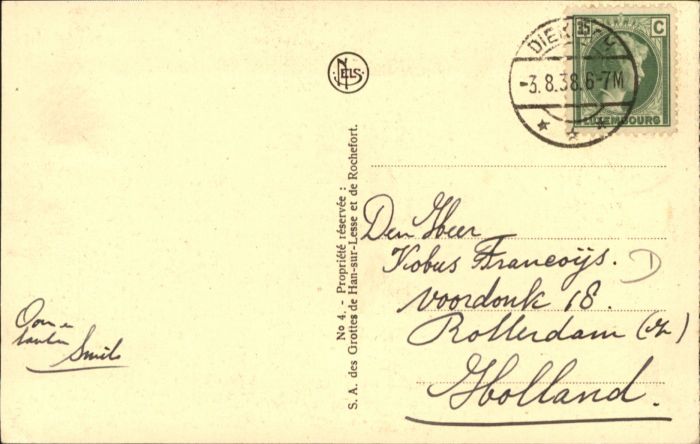 DIEKIRCH
-3.8.38.6-7M
35 C
LUXEMBOURG
NELS
No 4. - Propriété réservée :
S. A. des Grottes de Han-sur-Lesse et de Rochefort.
Den Heer
Kobus Francoijs.
Voordonk 18.
Rotterdam (Z)
Holland.
Oom en
tante Smits